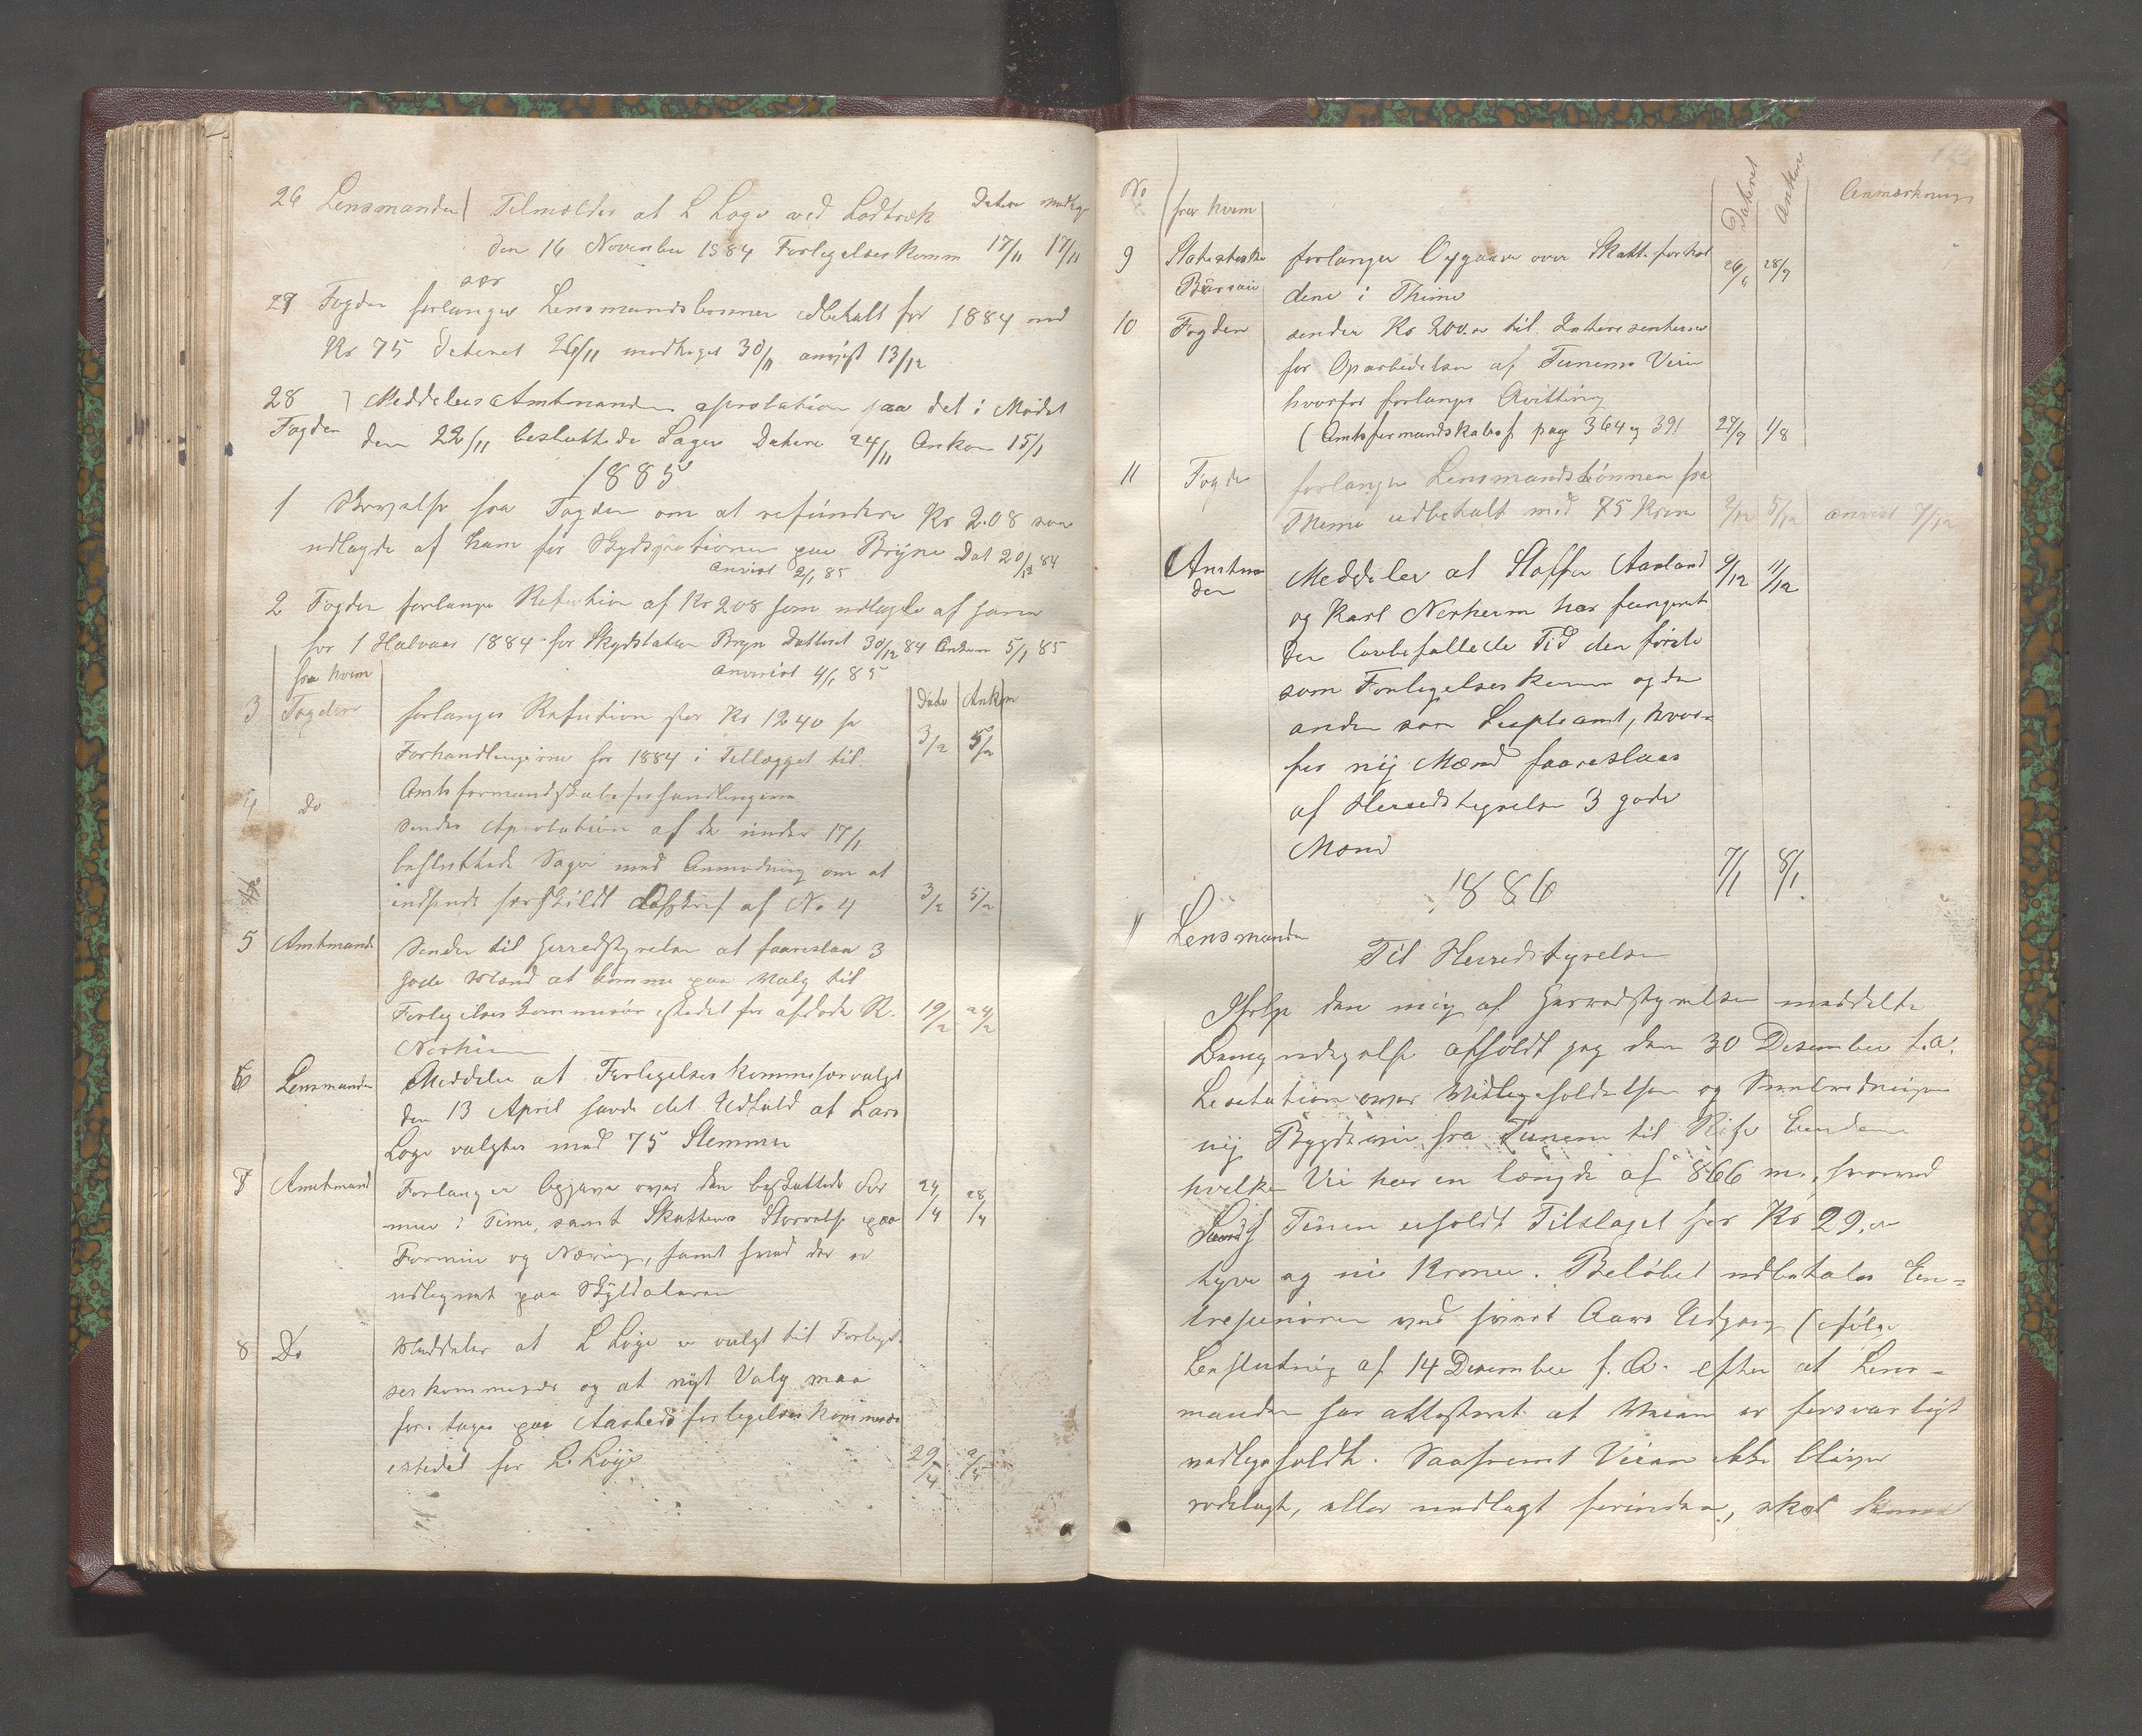 26 Lensmanden Tilmelder at L Loge ved Lodtræk Datere modtag
den 16 November 1884 Forligelseskomm 17/11 17/11
sær
27 Fogden forlanger Lensmandslønnen udbetalt for 1884 med
Kr 75 Dateret 26/11 modtaget 30/11 anvist 13/12
28 Meddeles Amtmandens aprobation paa det i Mødet
Fogden den 22/11 besluttede Sager Datere 24/11 Ankom 15/1
1885
1 Skrivelse fra Fogden om at refundere Kr 2.08 som
udlagde af ham for Skydsstationen paa Bryne Dat 20/12 84
Anvist 2/1 85
2 Fogden forlanger Refution af Kr 208 som udlagde af ham
for 1 Halvaar 1884 for Skydstation Bryn Datteret 30/12 84 Ankom 5/1 85
fra hvem anvist 4/1 85
Dato Ankom
3 Fogden forlanger Refution for Kr 1240 for 3/2 5/2
Forhandlingerne for 1884 i Tillægget til
Amtsformandskabsforhandlingerne
4 Do sender Aprobation af de under 17/1
besluttede Sager med Anmodning om at
indsende særskildt Afskrif af No 4 3/2 5/2
5 Amtmand Sender til Herredstyrelsen at faareslaa 3
gode Mænd at komme paa Valg til
Forligelses Commisær istedet for afdøde R. 19/2 24/2
Nerhim
6 Lensmanden Meddeler at Forligelses Kommissærvalget
den 13 April havde det Udfald at Lars
Loge valgtes med 75 Stemmer
7 Amtmand Forlanger Opgave over den beskattede For 24/4 28/4
mue i Time, samt Skattens Størrelse paa
Formue og Næring, samt hvad der er
udlignet paa Skyldalaren
8 Do Meddeler at L Loge er valgt til Forligel
seskommisær og at nyt Valg maa
foretages paa Aasteds forligelseskommesær
istedet for L. Loge 29/4 2/5
No fra hvem Dateret Ankom Anmærkning
9 Statestiske forlanger Opgaver over Skatteforhol 26/6 28/9
Büreau dene i Thime
10 Fogden sender Kr 200.00 til Interesenterne
for Oparbedelsen af Tunems Veien
hvorfor forlanges Qvittering
(Amtsformandskabsf pag 364 og 391 27/7 1/8
11 Fogden forlanger Lensmandslønnen fra
Thime udbetalt med 75 Kroner 2/12 5/12 anvist 7/12
Amtman Meddeler at Staffen Aanland 9/12 11/12
den og Karl Nerheim har fungeret
den lovbefallede Tid den første
som Forligelseskomm og den
anden som Supleant, hvor=
for nij Mænd faareslaas
af Herredstyrelsen 3 gode
Mænd
1886 7/1 8/1
1 Lensmanden
Til Herredstyrelsen
Ifølge den mig af Herredstyrelsen meddelte
Bemyndigelse afholdt jeg den 30 Desember f.a.
Lisitation over Vedligeholdelsen og
nij Bygdevei fra Tunem til Rife
hvilken Vei har en længde af 866 m., hvorved
Tunem erholdt Tilslaget for Kr 29.00
tyve og nie Kroner. Beløbet udbetales En=
treprenøren ved hvert Aars Udgang (ifølge
Beslutning af 14 Desember f. A. efter at Lens=
manden har attesteret at Veien er forsvarligt
vedligeholdt. Saafremt Veien ikke bliver
ødelagt, eller nedlagt forinden, skal